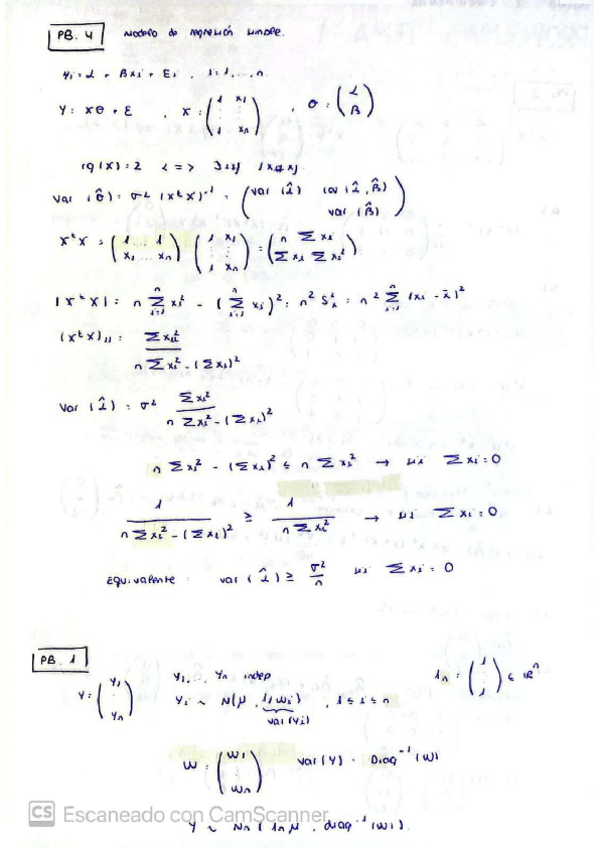 PB. 4 Modelo de regresión simple.
Yi = α + βxi + Ei , i = 1, ..., n.
Y = Xθ + E , X = ( 1 x1 ⋮ ⋮ 1 xn ) , θ = ( α β )
rg (X) = 2 <=> ∃ i≠j / xi≠xj.
Var (θ̂) = σ² (XᵗX)⁻¹ = ( var (α̂) cov (α̂, β̂) var (β̂) )
XᵗX = ( 1 ... 1 x1 ... xn ) ( 1 x1 ⋮ ⋮ 1 xn ) = ( n Σ xi Σ xi Σ xi² )
|XᵗX| = n Σ xi² - ( Σ xi )² = n² S²x = n² Σ (xi - x̄)²
(XᵗX)11 = Σ xi² / n Σ xi² - (Σ xi)²
Var (α̂) = σ² Σ xi² / n Σ xi² - (Σ xi)²
n Σ xi² - (Σ xi)² ≤ n Σ xi² → sii Σ xi = 0
1 / n Σ xi² - (Σ xi)² ≥ 1 / n Σ xi² → sii Σ xi = 0
Equivalente var (α̂) ≥ σ²/n sii Σ xi = 0
PB. 1
Y = ( Y1 ⋮ Yn ) Y1, .., Yn indep 1n = ( 1 ⋮ 1 ) ∈ ℝⁿ
Yi ~ N(μ, 1/wi) , 1 ≤ i ≤ n
var(Yi)
W = ( W1 ⋮ Wn ) var (Y) = Diag⁻¹ (W)
Y ~ Nn ( 1n μ , diag⁻¹ (Wi).
CS Escaneado con CamScanner